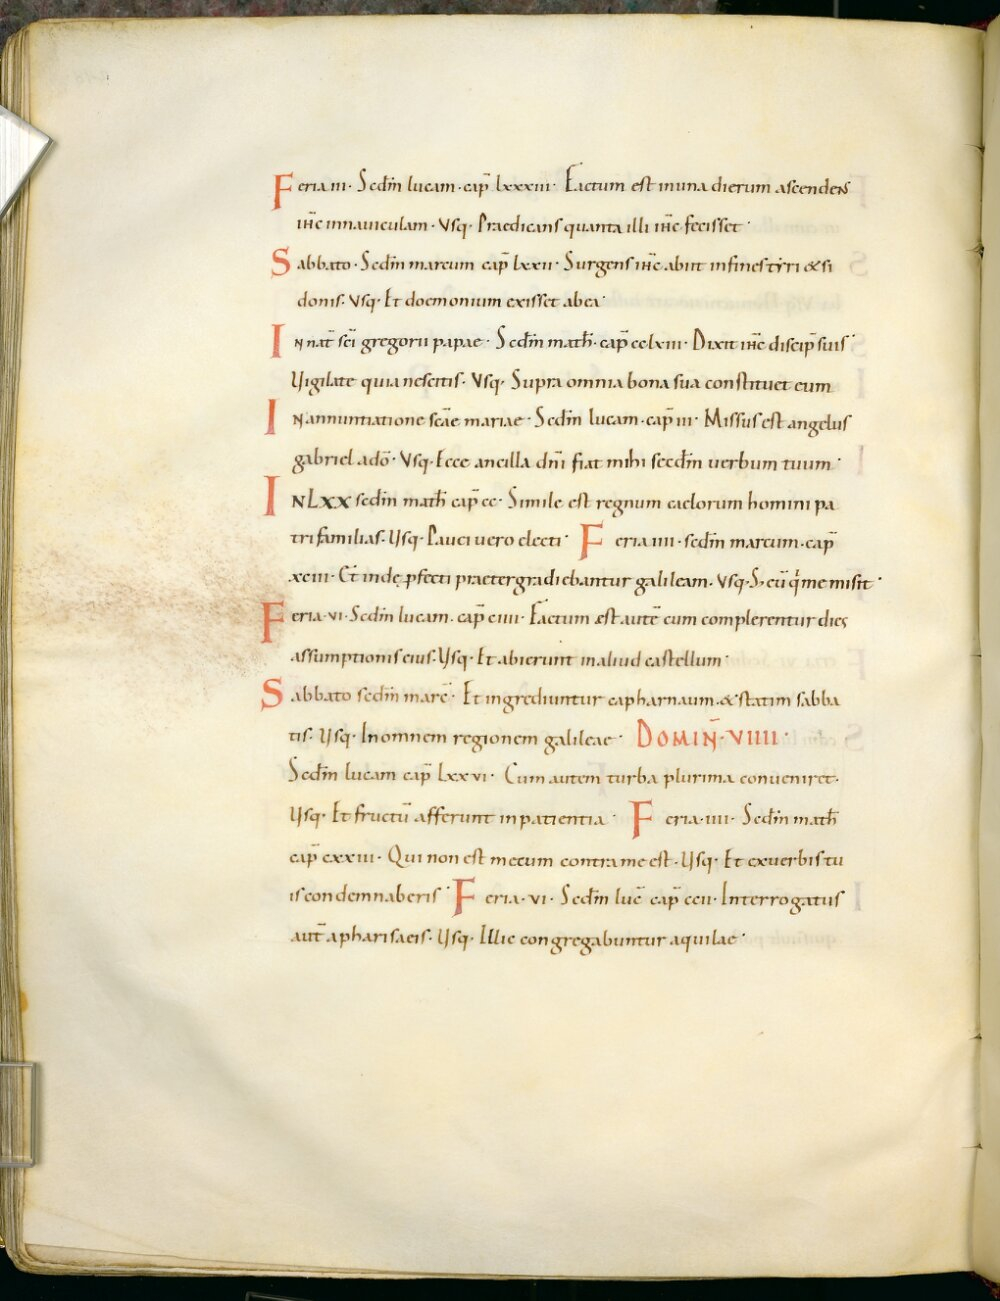 Feria iii· Scdm̄ lucam· cap̄ lxxxiii· Factum est in una dierum ascendens
ihc̄ in nauiculam· Vsq· Praedicans quanta illi ihc̄ fecisset·
Sabbato· Scdm̄ marcum cap̄ lxxii· Surgens ihc̄ abiit in fines tyri & si
donis· Vsq· Et doemonium exisset ab ea·
In nat̄ sc̄i gregorii papae· Scdm̄ math̄· cap̄ cclxiii· Dixit ihc̄ discip̄ suis·
Uigilate quia nescitis· Vsq· Supra omnia bona sua constituet eum
In annuntiatione sc̄ae mariae· Scdm̄ lucam· cap̄ iii· Missus est angelus
gabriel a dō· Vsq· Ecce ancilla dn̄i fiat mihi secdm̄ uerbum tuum·
IN LXX secdm̄ math̄ cap̄ cc· Simile est regnum caelorum homini pa
tri familias· Usq· Pauci uero electi· Feria iiii· secdm̄ marcum· cap̄
xciii· Et inde pfecti praetergradiebantur galileam· Vsq·
Feria· vi· Scdm̄ lucam· cap̄ ciiii· Factum est aut̄e cum complerentur dies
assumptionis eius· Usq· Et abierunt in aliud castellum·
Sabbato secdm̄ marc̄· Et ingrediuntur capharnaum· & statim sabba
tis· Usq· In omnem regionem galileae· DOMIN̄· VIIII·
Secdm̄ lucam cap̄ lxxvi· Cum autem turba plurima conueniret·
Usq· Et fructū afferunt in patientia· Feria· iiii· Secdm̄ math̄
cap̄ cxxiii· Qui non est mecum contra me est· Usq· Et ex uerbis tu
is condemnaberis· Feria· vi· Scdm̄ luc̄ cap̄ ccii· Interrogatus
aut̄ a pharisaeis· Usq· Illic congregabuntur aquilae·